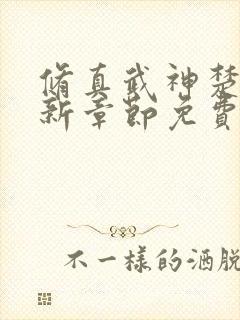 脩真武神楚
新章節免費
不一樣的洒脫